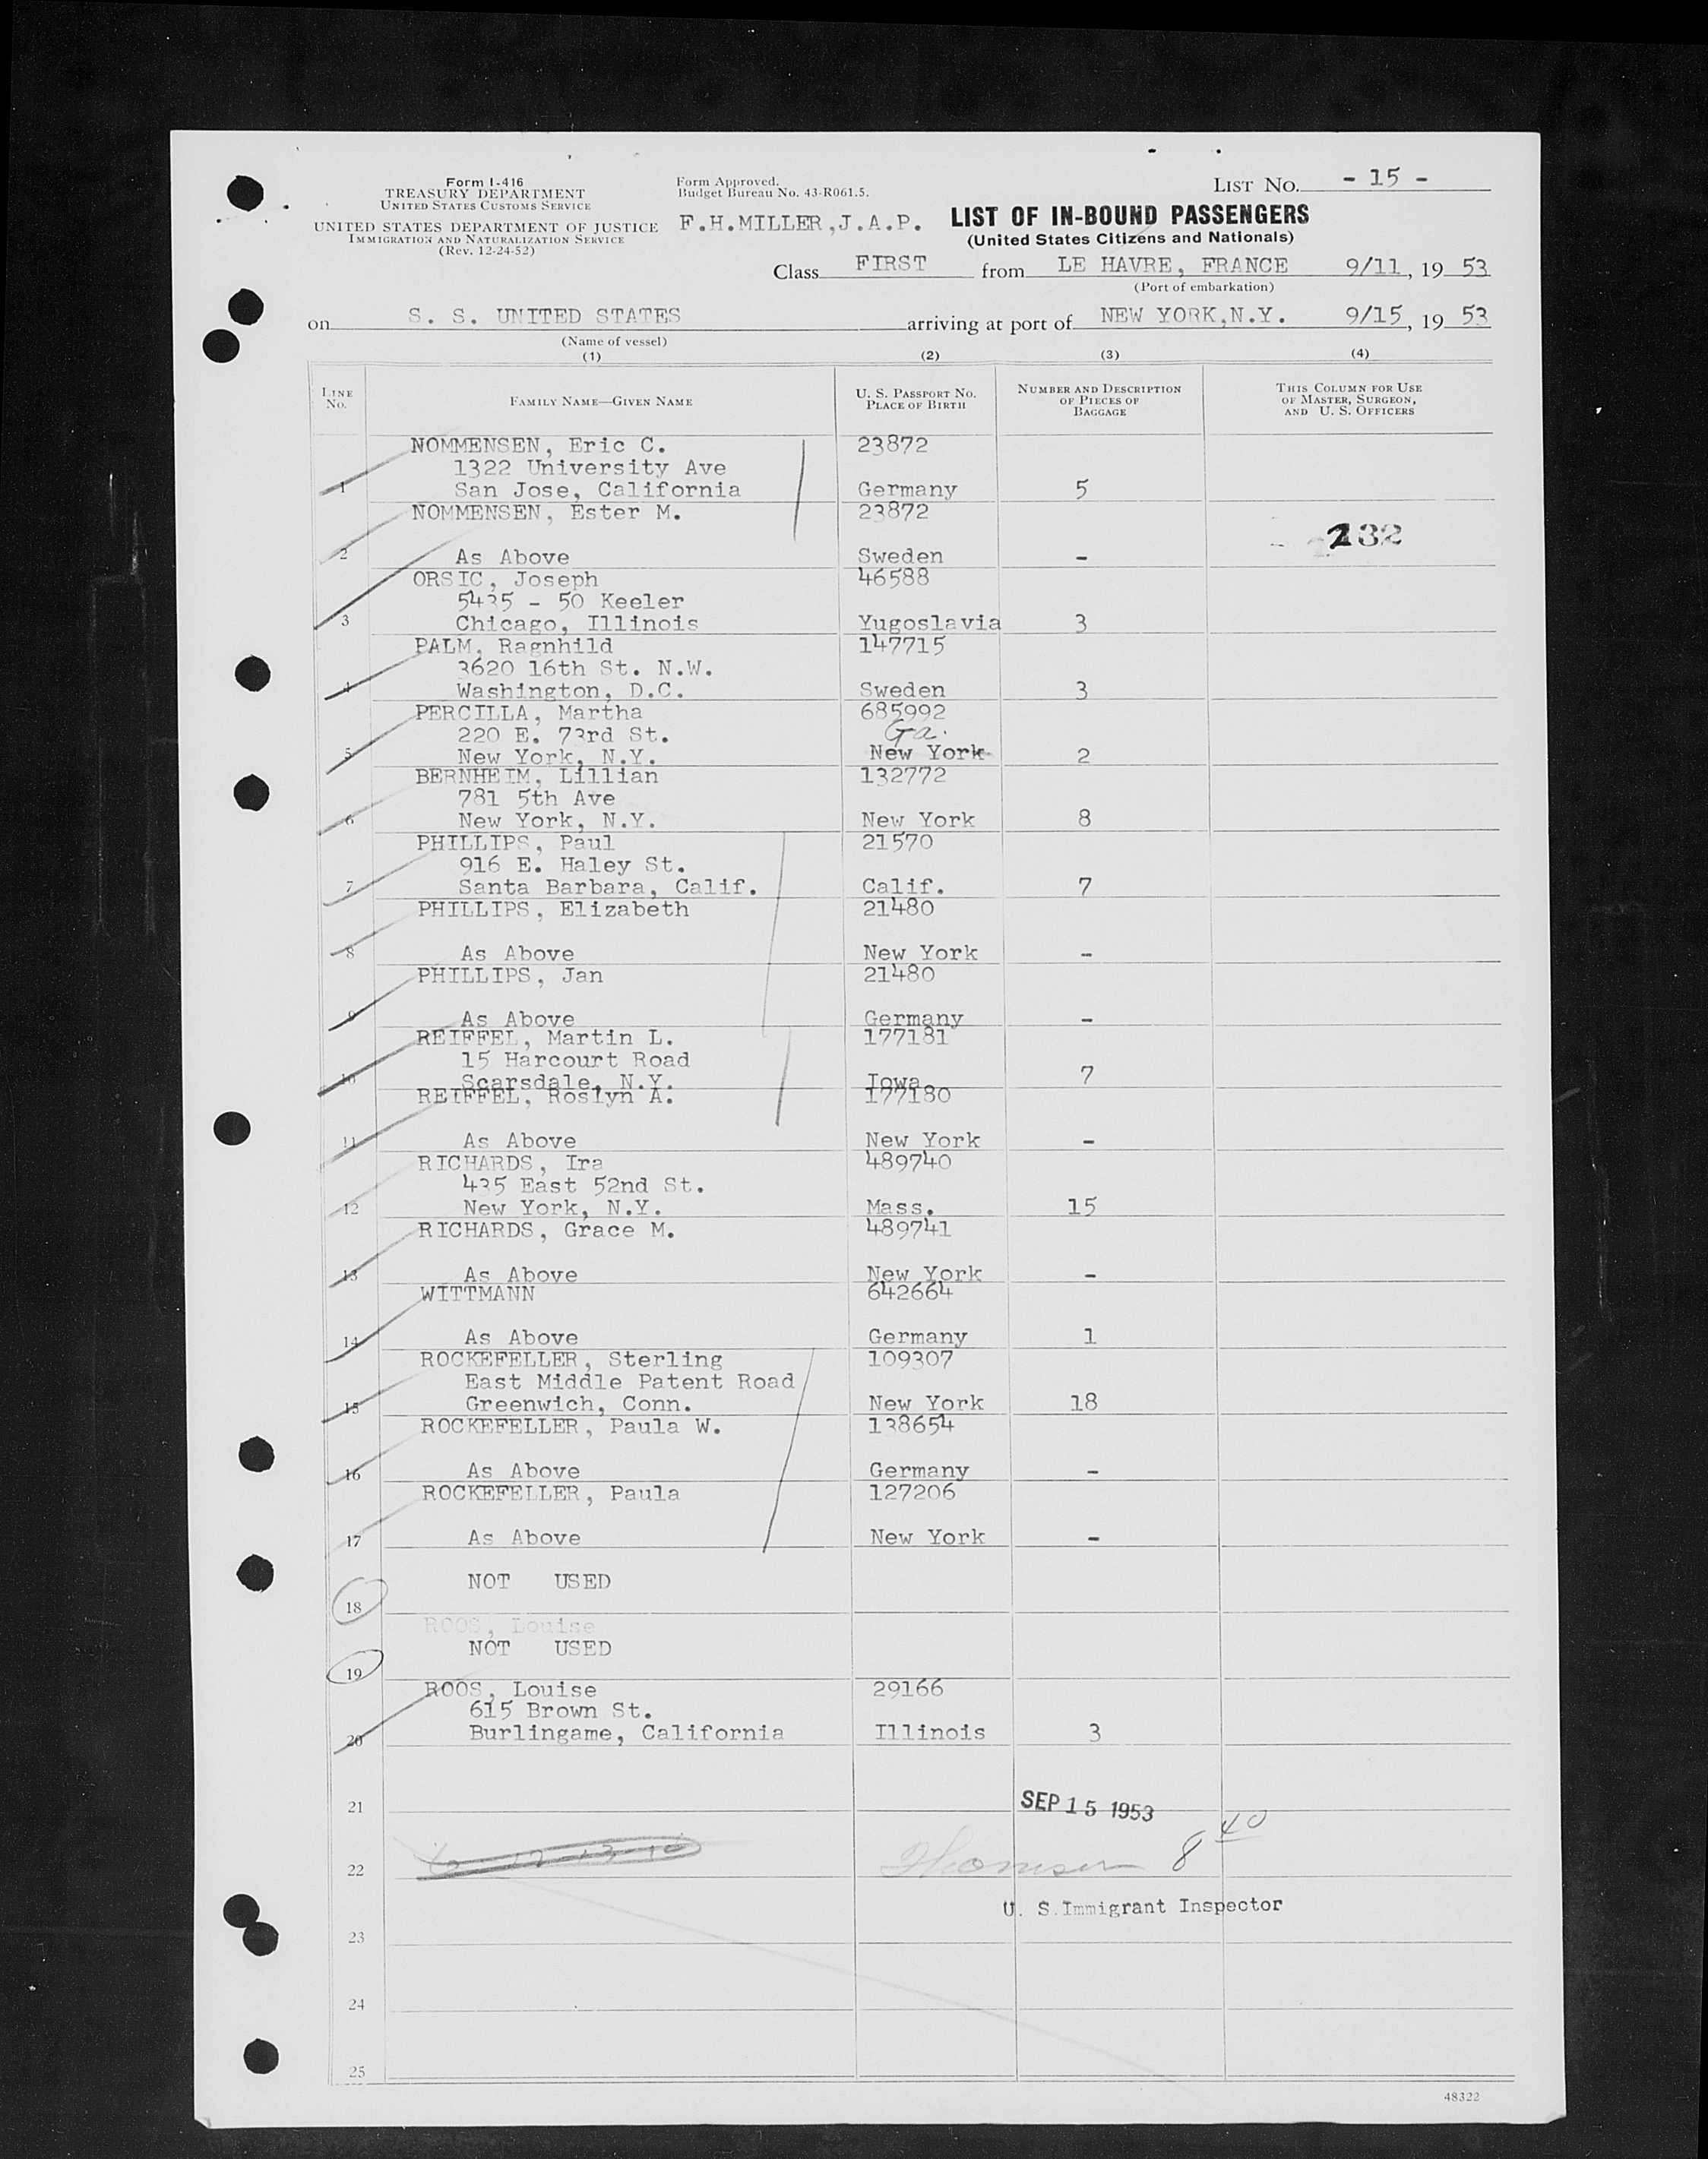 Form I-416
TREASURY DEPARTMENT
UNITED STATES CUSTOMS SERVICE
UNITED STATES DEPARTMENT OF JUSTICE
IMMIGRATION AND NATURALIZATION SERVICE
(Rev. 12-24-52)
Form Approved.
Budget Bureau No. 43-R061.5.
F.H.MILLER,J.A.P.
LIST NO. - 15 -
LIST OF IN-BOUND PASSENGERS
(United States Citizens and Nationals)
Class FIRST from LE HAVRE, FRANCE 9/11, 19 53
(Port of embarkation)
on S. S. UNITED STATES arriving at port of NEW YORK,N.Y. 9/15, 19 53
(Name of vessel)
(1) (2) (3) (4)
LINE NO. FAMILY NAME—GIVEN NAME U. S. PASSPORT NO. PLACE OF BIRTH NUMBER AND DESCRIPTION OF PIECES OF BAGGAGE THIS COLUMN FOR USE OF MASTER, SURGEON, AND U. S. OFFICERS
NOMMENSEN, Eric C. 23872
1322 University Ave
1 San Jose, California Germany 5
NOMMENSEN, Ester M. 23872
232
2 As Above Sweden -
ORSIC, Joseph 46588
5435 - 50 Keeler
3 Chicago, Illinois Yugoslavia 3
PALM, Ragnhild 147715
3620 16th St. N.W.
4 Washington, D.C. Sweden 3
PERCILLA, Martha 685992
220 E. 73rd St. Ga.
5 New York, N.Y. New York 2
BERNHEIM, Lillian 132772
781 5th Ave
6 New York, N.Y. New York 8
PHILLIPS, Paul 21570
916 E. Haley St.
7 Santa Barbara, Calif. Calif. 7
PHILLIPS, Elizabeth 21480
8 As Above New York -
PHILLIPS, Jan 21480
9 As Above Germany -
REIFFEL, Martin L. 177181
15 Harcourt Road
10 Scarsdale, N.Y. Iowa 7
REIFFEL, Roslyn A. 177180
11 As Above New York -
RICHARDS, Ira 489740
435 East 52nd St.
12 New York, N.Y. Mass. 15
RICHARDS, Grace M. 489741
13 As Above New York -
WITTMANN 642664
14 As Above Germany 1
ROCKEFELLER, Sterling 109307
East Middle Patent Road
15 Greenwich, Conn. New York 18
ROCKEFELLER, Paula W. 138654
16 As Above Germany -
ROCKEFELLER, Paula 127206
17 As Above New York -
NOT USED
18
ROOS, Louise
NOT USED
19
ROOS, Louise 29166
615 Brown St.
20 Burlingame, California Illinois 3
21 SEP 15 1953
22 8 40
U. S. Immigrant Inspector
23
24
25
48322